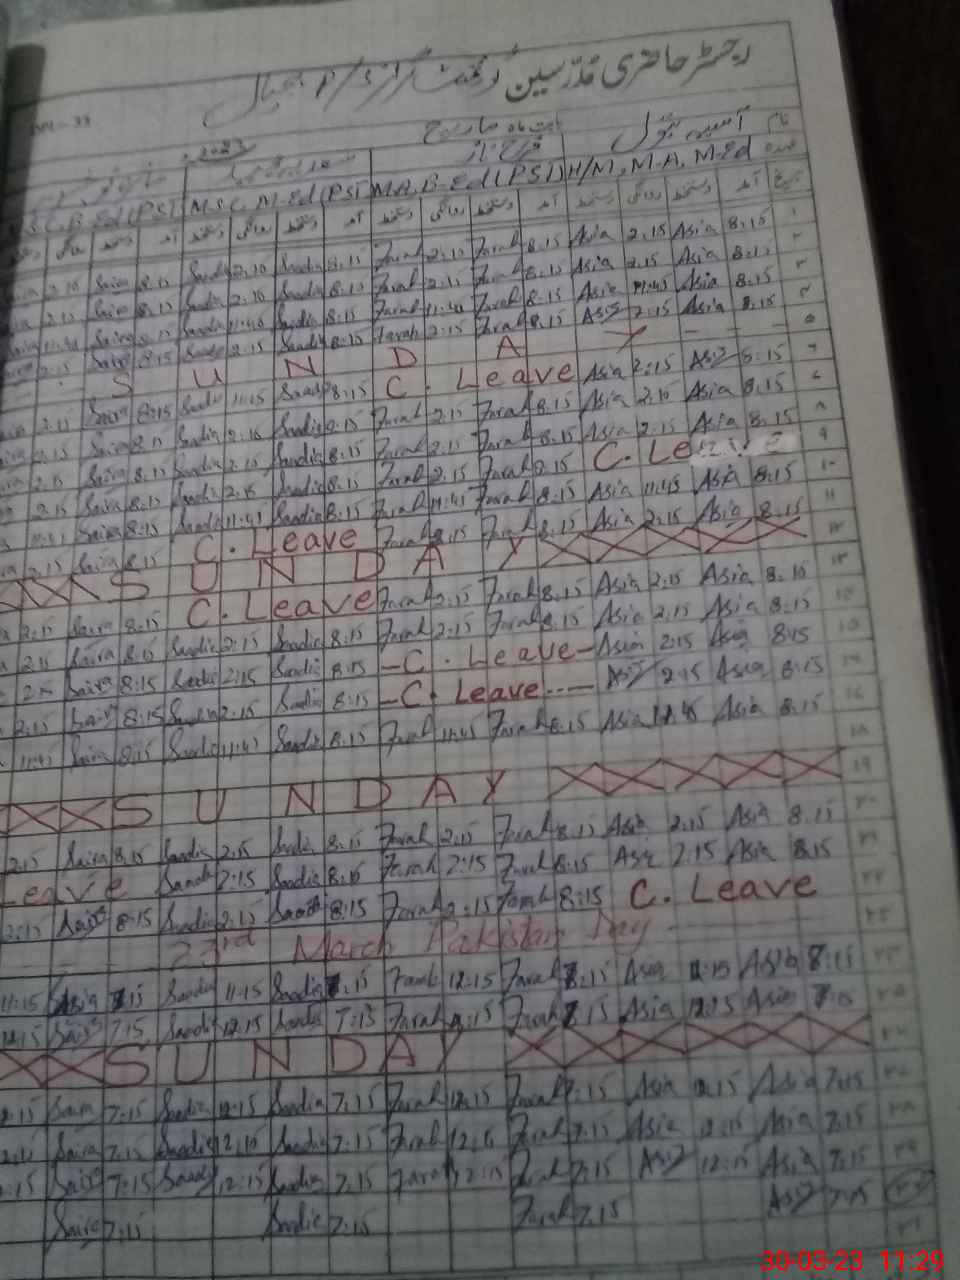 رجسٹر حاضری مدرسین گورنمنٹ گرلز
2023 بابت ماہ مارچ
آسیہ بتول
فرح ناز
B.Ed (PST) M.S.C, M-Ed (PST) M.A, B-Ed (PST) H/M, M.A, M-Ed
دستخط روانگی دستخط آمد دستخط روانگی دستخط آمد دستخط روانگی دستخط آمد تاریخ
Saira 8:15 Saadia 2:15 Saadia 8:15 Farah 2:15 Farah 8:15 Asia 2:15 Asia 8:15 ۱
2:15 Saira 8:15 Saadia 2:15 Saadia 8:15 Farah 2:15 Farah 8:15 Asia 2:15 Asia 8:15 ۲
11:45 Saira 8:15 Saadia 11:45 Saadia 8:15 Farah 11:45 Farah 8:15 Asia 11:45 Asia 8:15 ۳
2:15 Saira 8:15 Saadia 2:15 Saadia 8:15 Farah 2:15 Farah 8:15 Asia 2:15 Asia 8:15 ۴
S U N D A Y ۵
2:15 Saira 8:15 Saadia Saadia 8:15 C. Leave Asia 2:15 Asia 8:15 ۶
2:15 Saira 8:15 Saadia 2:15 Saadia 8:15 Farah 2:15 Farah 8:15 Asia 2:15 Asia 8:15 ۷
2:15 Saira 8:15 Saadia 2:15 Saadia 8:15 Farah 2:15 Farah 8:15 Asia 2:15 Asia 8:15 ۸
2:15 Saira 8:15 Saadia 2:15 Saadia 8:15 Farah 2:15 Farah 8:15 C. Leave ۹
11:45 Saira 8:15 Saadia 11:45 Saadia 8:15 Farah 11:45 Farah 8:15 Asia 11:45 Asia 8:15 ۱۰
2:15 Saira 8:15 C. Leave Farah 2:15 Farah 8:15 Asia 2:15 Asia 8:15 ۱۱
S U N D A Y ۱۲
2:15 Saira 8:15 C. Leave Farah 2:15 Farah 8:15 Asia 2:15 Asia 8:15 ۱۳
2:15 Saira 8:15 Saadia 2:15 Saadia 8:15 Farah 2:15 Farah 8:15 Asia 2:15 Asia 8:15
2:15 Saira 8:15 Saadia 2:15 Saadia 8:15 – C. Leave – Asia 2:15 Asia 8:15
2:15 Saira 8:15 Saadia 2:15 Saadia 8:15 – C. Leave --- Asia 2:15 Asia 8:15
11:45 Saira 8:15 Saadia 11:45 Saadia 8:15 Farah 11:45 Farah 8:15 Asia 11:45 Asia 8:15
۱۸
S U N D A Y ۱۹
2:15 Saira 8:15 Saadia 2:15 Saadia 8:15 Farah 2:15 Farah 8:15 Asia 2:15 Asia 8:15 ۲۰
Leave Saadia 2:15 Saadia 8:15 Farah 2:15 Farah 8:15 Asia 2:15 Asia 8:15 ۲۱
2:15 Saira 8:15 Saadia 2:15 Saadia 8:15 Farah 2:15 Farah 8:15 C. Leave ۲۲
23rd March Pakistan Day ۲۳
11:15 7:15 Saadia 11:15 Saadia 7:15 Farah 12:15 Farah 7:15 Asia 11:15 Asia 7:15
12:15 Saira 7:15 Saadia 12:15 Saadia 7:15 Farah 12:15 Farah 7:15 Asia 12:15 Asia 7:15 ۲۵
S U N D A Y ۲۶
12:15 Saira 7:15 Saadia 12:15 Saadia 7:15 Farah 12:15 Farah 7:15 Asia 12:15 Asia 7:15 ۲۷
Saira 7:15 Saadia 12:15 Saadia 7:15 Farah 12:15 Farah 7:15 Asia 12:15 Asia 7:15 ۲۸
Saira 7:15 Saadia 12:15 Saadia 7:15 Farah 12:15 Farah 7:15 Asia 12:15 Asia 7:15 ۲۹
Saira 7:15 Saadia 7:15 Farah 7:15 Asia 7:15 ۳۰
۳۱
30-03-23 11:29